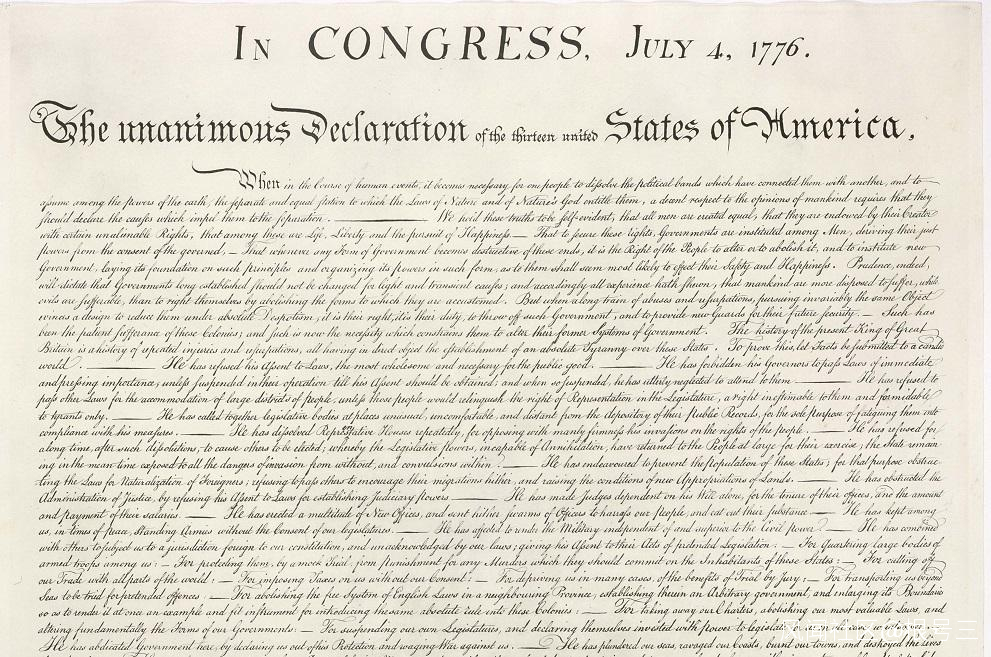 IN CONGRESS, JULY 4, 1776.
The unanimous Declaration of the thirteen united States of America,
When in the Course of human events, it becomes necessary for one people to dissolve the political bands which have connected them with another, and to
assume among the powers of the earth, the separate and equal station to which the Laws of Nature and of Nature's God entitle them, a decent respect to the opinions of mankind requires that they
should declare the causes which impel them to the separation. We hold these truths to be self-evident, that all men are created equal, that they are endowed by their Creator
with certain unalienable Rights, that among these are Life, Liberty and the pursuit of Happiness.— That to secure these rights, Governments are instituted among Men, deriving their just
powers from the consent of the governed, — That whenever any Form of Government becomes destructive of these ends, it is the Right of the People to alter or to abolish it, and to institute new
Government, laying its foundation on such principles and organizing its powers in such form, as to them shall seem most likely to effect their Safety and Happiness. Prudence, indeed,
will dictate that Governments long established should not be changed for light and transient causes; and accordingly all experience hath shewn, that mankind are more disposed to suffer, while
evils are sufferable, than to right themselves by abolishing the forms to which they are accustomed. But when a long train of abuses and usurpations, pursuing invariably the same Object
evinces a design to reduce them under absolute Despotism, it is their right, it is their duty, to throw off such Government, and to provide new Guards for their future security.— Such has
been the patient sufferance of these Colonies; and such is now the necessity which constrains them to alter their former Systems of Government. The history of the present King of Great
Britain is a history of repeated injuries and usurpations, all having in direct object the establishment of an absolute Tyranny over these States. To prove this, let Facts be submitted to a candid
world. — He has refused his Assent to Laws, the most wholesome and necessary for the public good. — He has forbidden his Governors to pass Laws of immediate
and pressing importance, unless suspended in their operation till his Assent should be obtained; and when so suspended, he has utterly neglected to attend to them — He has refused to
pass other Laws for the accommodation of large districts of people, unless those people would relinquish the right of Representation in the Legislature, a right inestimable to them and formidable
to tyrants only. — He has called together legislative bodies at places unusual, uncomfortable, and distant from the depository of their Public Records, for the sole purpose of fatiguing them into
compliance with his measures. — He has dissolved Representative Houses repeatedly, for opposing with manly firmness his invasions on the rights of the people. — He has refused for
a long time, after such dissolutions, to cause others to be elected; whereby the Legislative powers, incapable of Annihilation, have returned to the People at large for their exercise; the State remain
ing in the mean time exposed to all the dangers of invasion from without, and convulsions within. — He has endeavoured to prevent the population of these States; for that purpose obstruc-
ting the Laws for Naturalization of Foreigners; refusing to pass others to encourage their migrations hither, and raising the conditions of new Appropriations of Lands. — He has obstructed the
Administration of Justice, by refusing his Assent to Laws for establishing Judiciary powers — He has made Judges dependent on his Will alone, for the tenure of their offices, and the amount
and payment of their salaries. — He has erected a multitude of New Offices, and sent hither swarms of Officers to harrass our people, and eat out their substance — He has kept among
us, in times of peace, Standing Armies without the Consent of our legislatures — He has affected to render the Military independent of and superior to the Civil power — He has combined
with others to subject us to a jurisdiction foreign to our constitution, and unacknowledged by our laws; giving his Assent to their Acts of pretended Legislation: — For Quartering large bodies of
armed troops among us: — For protecting them, by a mock Trial, from punishment for any Murders which they should commit on the Inhabitants of these States: — For cutting off
our Trade with all parts of the world: — For imposing Taxes on us without our Consent: — For depriving us in many cases, of the benefits of Trial by Jury: — For transporting us beyond
Seas to be tried for pretended offences: — For abolishing the free System of English Laws in a neighbouring Province, establishing therein an Arbitrary government, and enlarging its Boundaries
so as to render it at once an example and fit instrument for introducing the same absolute rule into these Colonies: — For taking away our Charters, abolishing our most valuable Laws, and
altering fundamentally the Forms of our Governments: — For suspending our own Legislatures, and declaring themselves invested with power to legislate
He has abdicated Government here, by declaring us out of his Protection and waging War against us. — He has plundered our seas, ravaged our Coasts, burnt our towns, and destroyed the lives